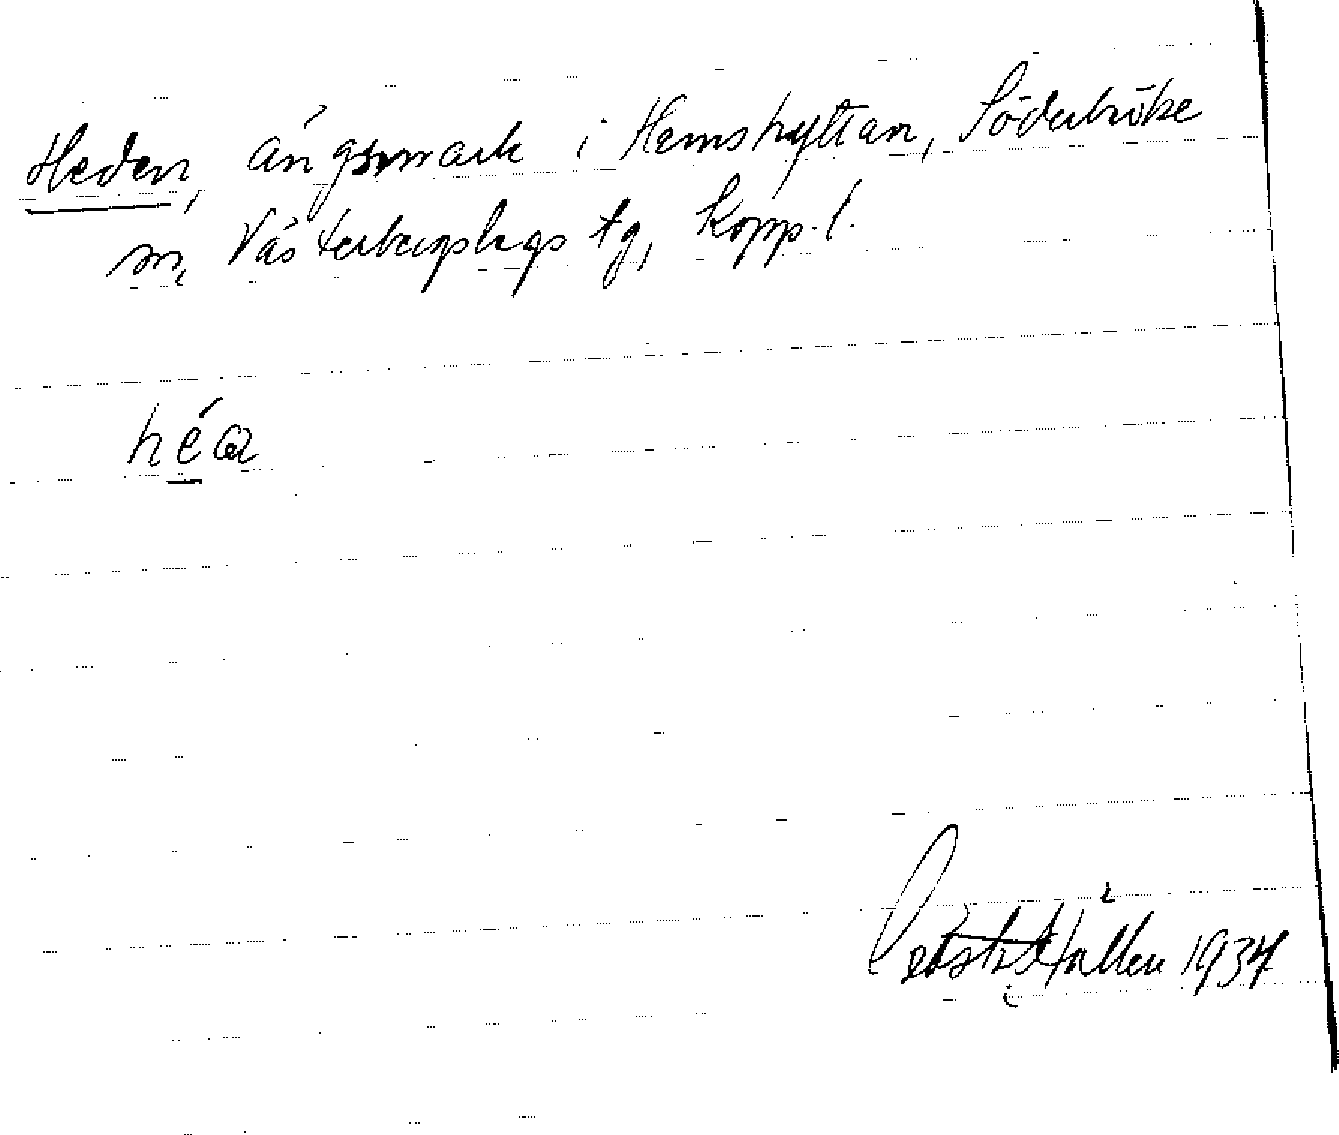 Heden, ängsmark i Hemshyttan, Söderbärke
sn, Västerbergslags tg, Kopp. l.
héa
1934